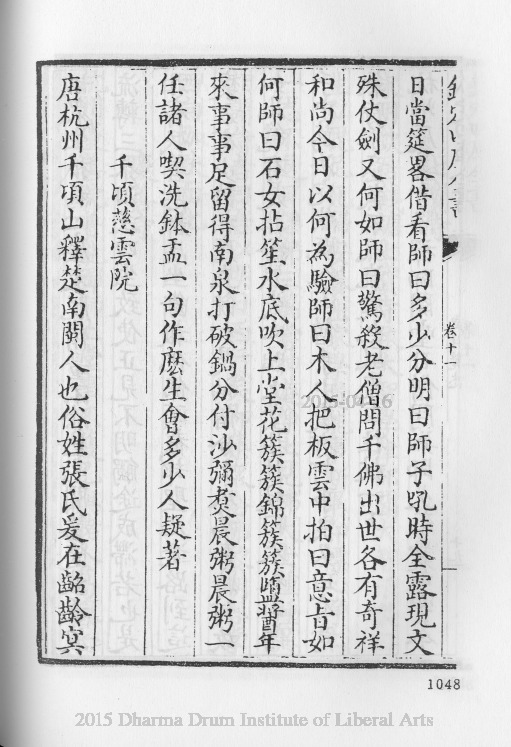 欽定四庫全書
卷十一
日當筵畧借看師曰多少分明曰師子吼時全露現文
殊仗劍又何如師曰驚殺老僧問千佛出世各有奇祥
和尚今日以何為驗師曰木人把板雲中拍曰意旨如
何師曰石女拈笙水底吹上堂花簇簇錦簇簇鹽醬年
來事事足留得南泉打破鍋分付沙彌煑晨粥晨粥一
任諸人喫洗鉢盂一句作麽生會多少人疑著
千頃慈雲院
唐杭州千頃山釋楚南閩人也俗姓張氏爰在齠齡㝠
1048
2015 Dharma Drum Institute of Liberal Arts